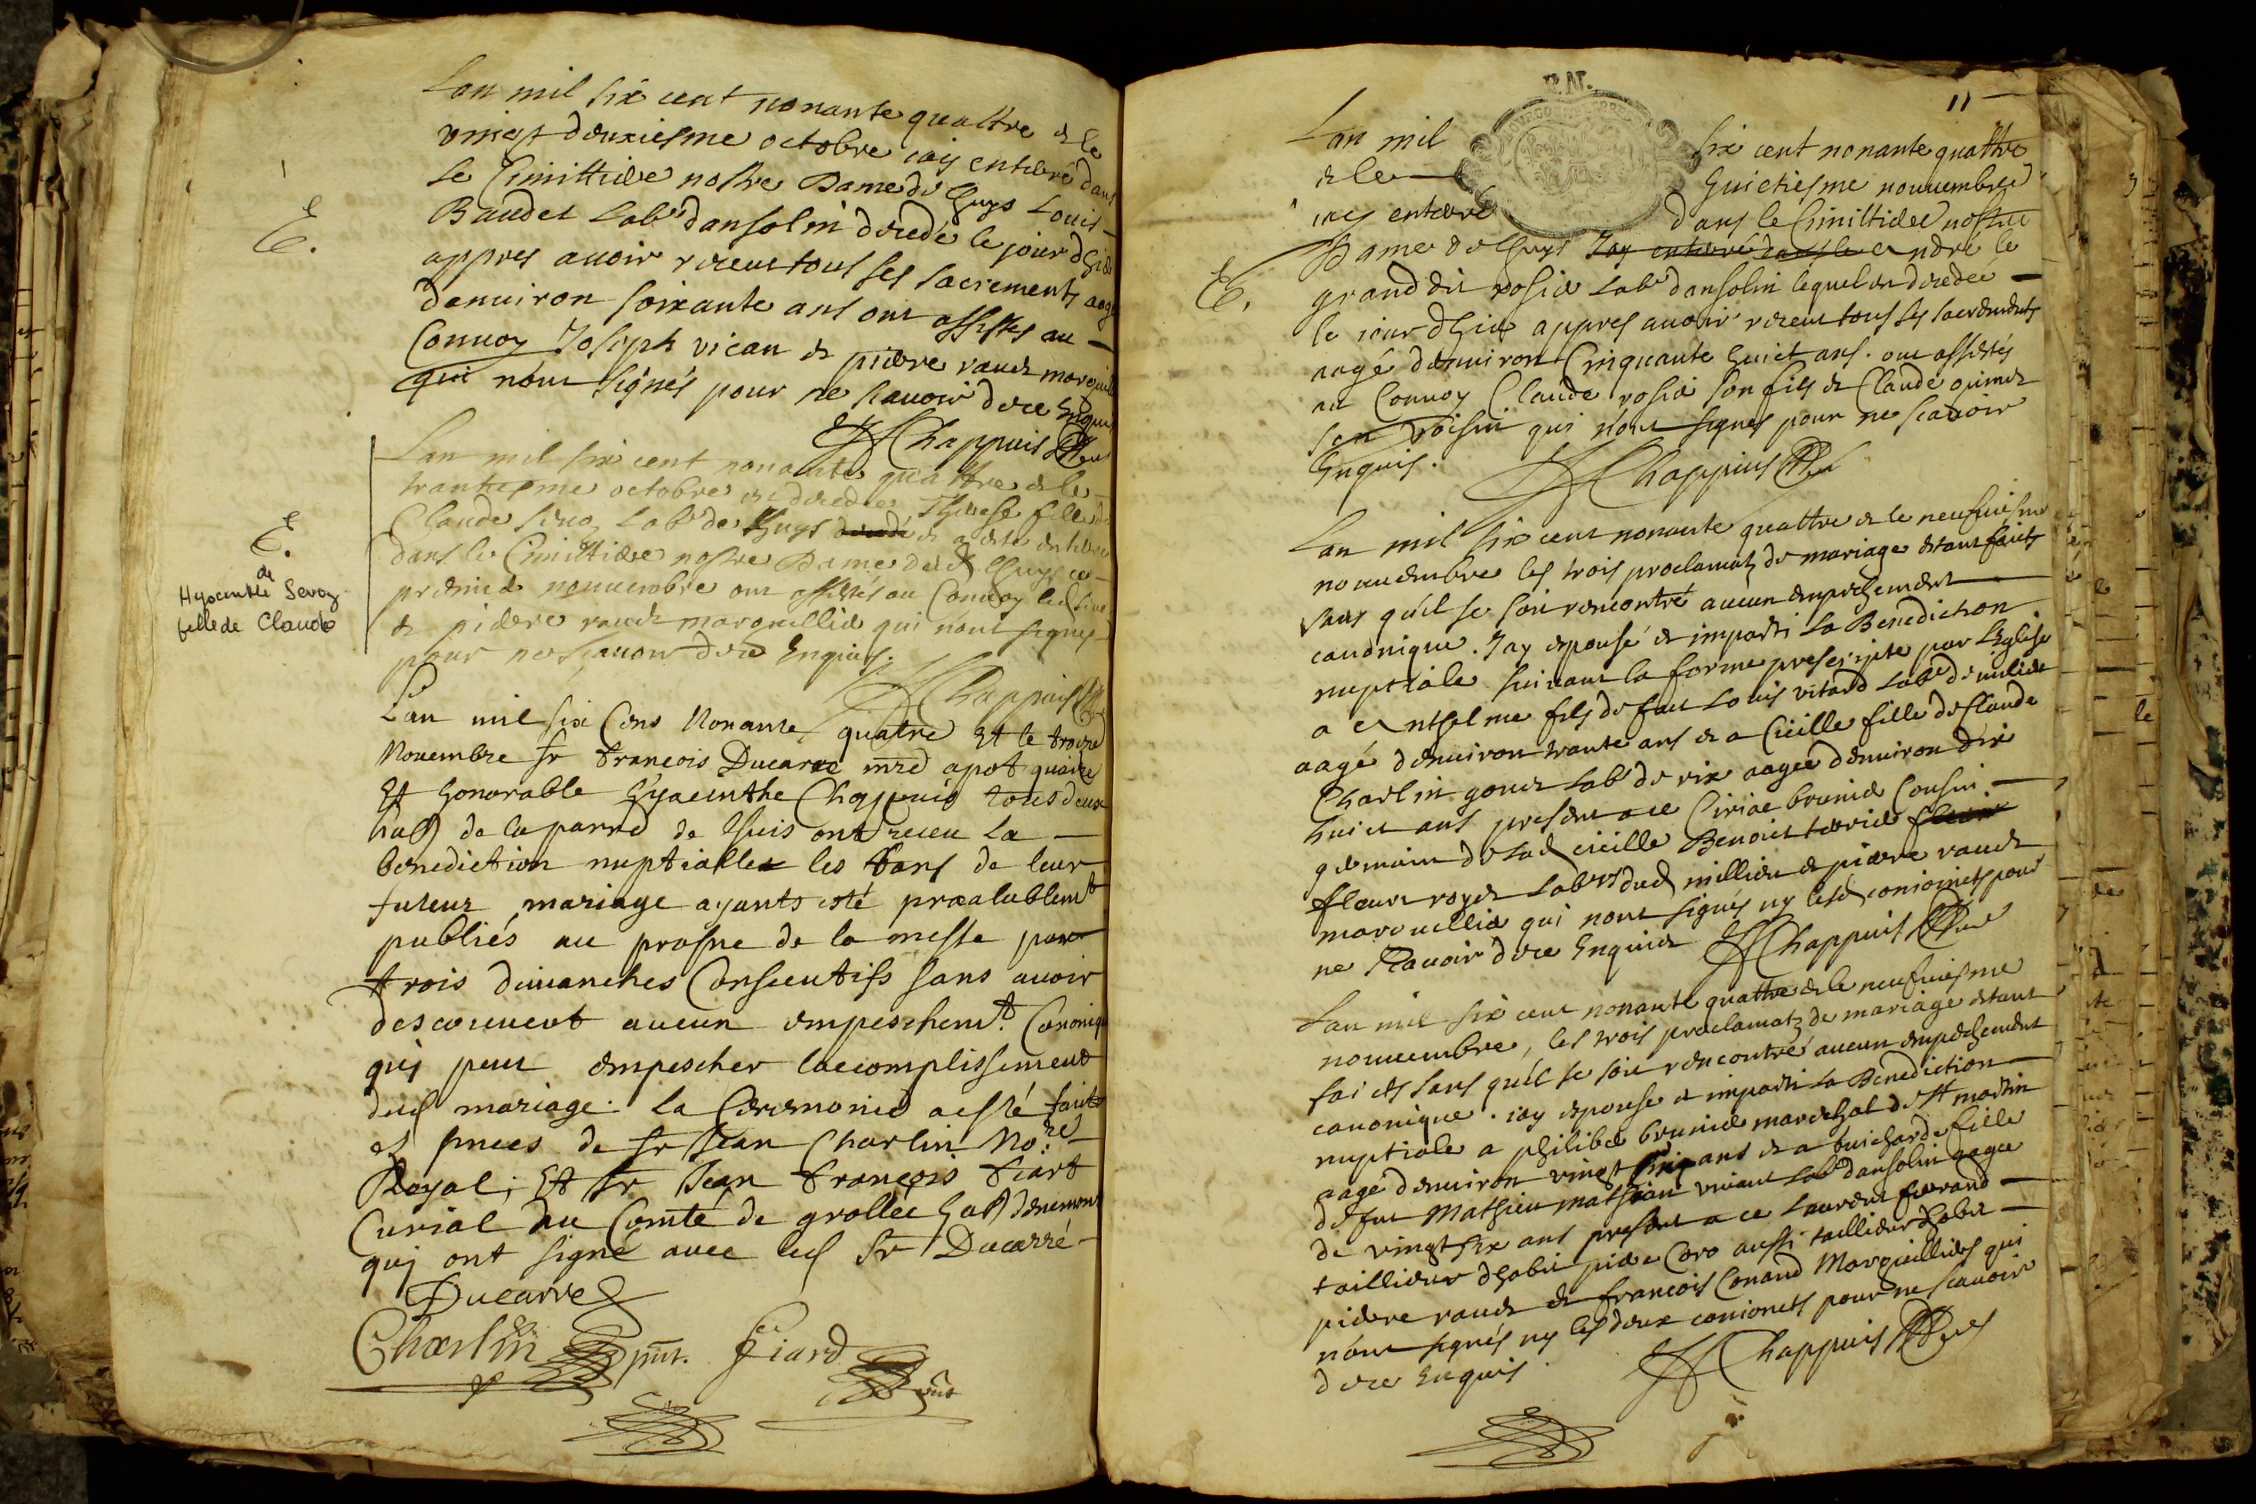 Lan mil six cent nonante quattre & le
vingt deuxiesme octobre iay enterré dans
le Cimittiere nostre Dame de Lhuys Louis
Baudet Labr dansolin decedé le jour dhier
appres avoir receu tous ses sacrements aagé
denuiron soixante ans ont assistés au
Conuoy Joseph vicau & pierre vaudz
qui nont signés pour ne scauoir de ce Enquis
Chappuis
E.
Lan mil six cent nonante quattre & le
trantiesme octobre est decedee Therese fille de
Claude Labr de Lhuys & a esté enterré
dans le Cimittiere nostre Dame dud Lhuys ce
premier nouuembre ont assistés au Conuoy led
& pierre vaudz marguillier qui nont signés
pour ne scauoir de ce Enquis.
Chappuis
E.
de
Hyacinthe Sevoz
fille de Claude
Lan mil six Cens Nonante quatre Et le troize
Nouembre Sr francois Ducarre mrd apotiquaire
Et honorable hyacinthe Chappuis tous deux
hab de la parre de Lhuis ont receu La
benediction nuptialle les bans de leur
futeur mariage ayants esté prealablemt
publiés au prosne de la messe par
trois dimanches Consecutifs sans auoir
descouuert aucun empeschemt Canoniq
qui peut empescher lacomplissement
dud mariage. la Ceremonie a esté faite
es pnces de Sr Jean Charlin Nore
Royal, Et Sr Jean francois fiart
Curial du Comté de grollée hab
qui ont signé auec led Sr Ducarré
Ducarre
Charlin pnt. fiard pnt
11
Lan mil six cent nonante quattre
& le huictiesme nouuembre
iay enterré dans le Cimittiere nostre
Dame de Lhuys Jay enterré dans le Andre le
grand dit rosier Labr dansolin lequel est decedé
le iour dhier appres auoir receu tous ses sacrements
aagé denuiron Cinquante huict ans. ont assistés
au Conuoy Claude rosier son fils & Claude
son voisin qui nont signes pour ne scauoir
Enquis.
Chappuis
E.
Lan mil six cent nonante quattre & le neufuiesme
nouuembre les trois proclamats de mariage estant faicts
sans qu'il se soit rencontré aucun empeschement
canonique. Jay espousé & imparti La Benediction
nuptiale suiuant la forme prescripte par l'Eglise
a Anthelme fils de feu Louis vitard Labr de milieu
aagé denuiron trante ans & a Cicille fille de Claude
Charlin gonet Labr de rix aagee denuiron dix
huict ans present a ce Ciriac brunier Cousin
germain de lad cicille Benoict
fleury royer Labrs dud millieu & pierre vaudz
marguillier qui nont signés ny lesd conioincts pour
ne scauoir de ce Enquis
Chappuis
Lan mil six cent nonante quattre & le neufuiesme
nouuembre, les trois proclamats de mariage estant
faicts sans qu'il se soit rencontré aucun empeschement
canonique. iay espouse & imparti La Benediction
nuptiale a philibert brunier mareschal de St martin
aagé denuiron vingt ans & a buicharde fille
de feu Mathieu viuant Labr dansolin aagee
de vingt six ans present a ce Laurent ferrand
taillieur dhabit pierre Coro aussi taillieur dhabit
pierre vaudz & francois Conand Marguilliers qui
nont signés ny les deux conioincts pour ne scauoir
de ce Enquis.
Chappuis